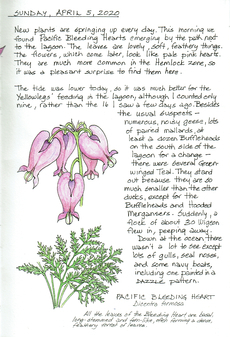 SUNDAY, APRIL 5, 2020
New plants are springing up every day. This morning we
found Pacific Bleeding Hearts emerging by the path next
to the lagoon. The leaves are lovely, soft, feathery things.
The flowers, which come later, look like pale pink hearts.
They are much more common in the Hemlock zone, so
it was a pleasant surprise to find them here.
The tide was lower today, so it was much better for the
Yellowlegs' feeding in the lagoon, although I counted only
nine, rather than the 16 I saw a few days ago. Besides
the usual suspects –
numerous, noisy geese, lots
of paired mallards, at
least a dozen Buffleheads
on the south side of the
lagoon for a change –
there were several Green-
winged Teal. They stand
out because they are so
much smaller than the other
ducks, except for the
Buffleheads and Hooded
Mergansers. Suddenly, a
flock of about 30 Wigeon
flew in, peeping away.
Down at the ocean there
wasn't a lot to see except
lots of gulls, seal noses,
and some navy boats,
including one painted in a
DAZZLE pattern.
PACIFIC BLEEDING HEART
Dicentra formosa
All the leaves of the Bleeding Heart are basal,
long-stemmed and fern-like, each forming a dense,
feathery spread of leaves.